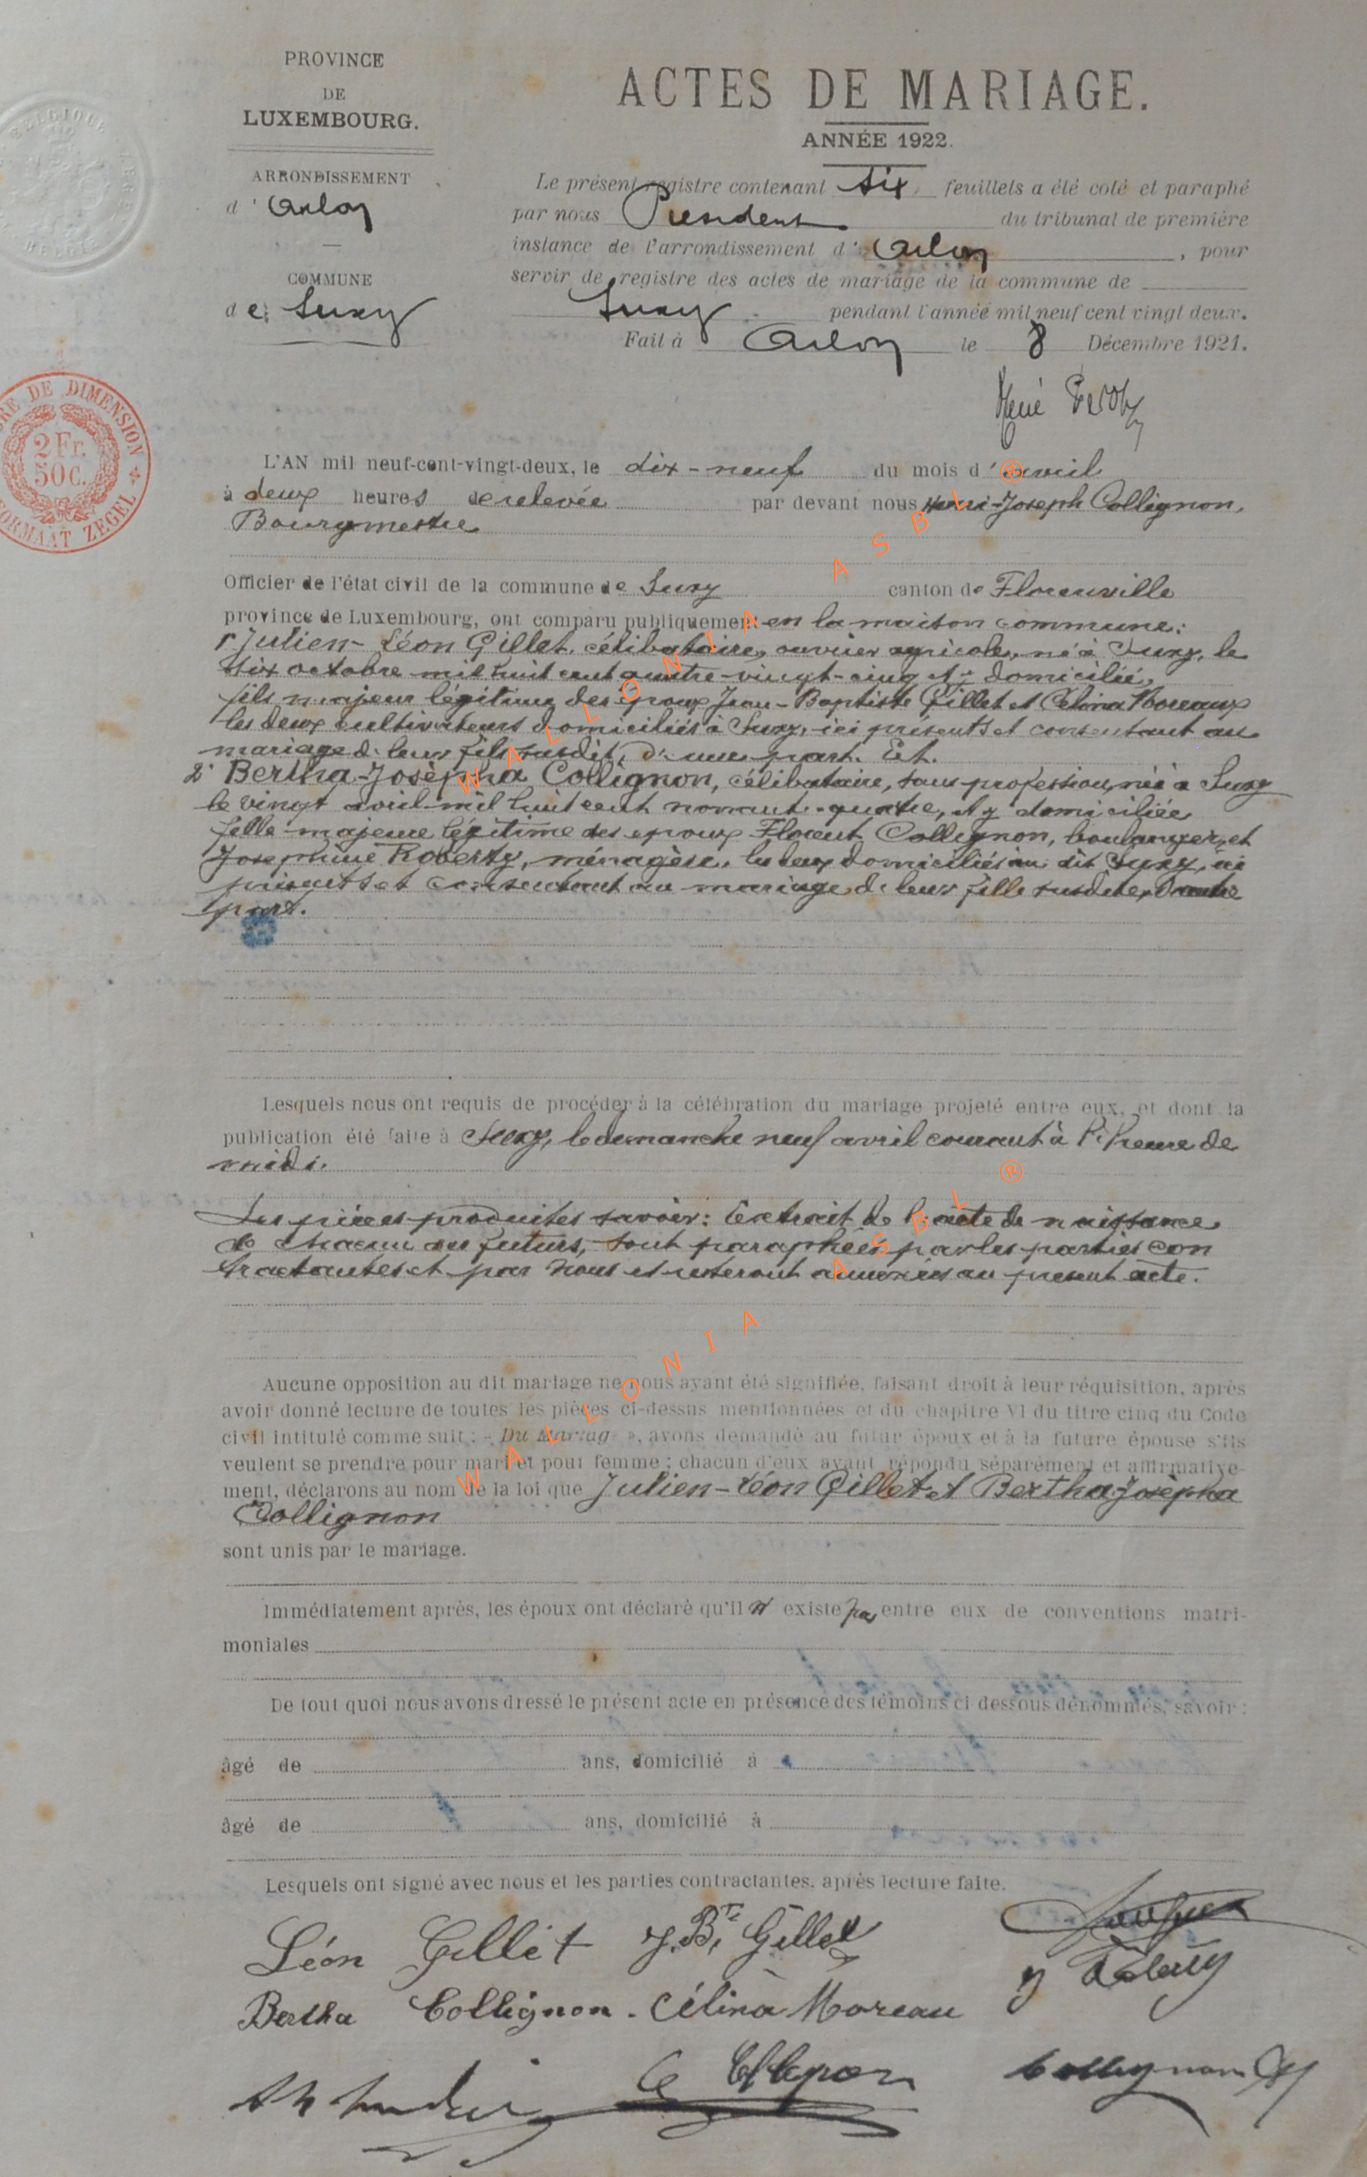 PROVINCE
DE
LUXEMBOURG.
ARRONDISSEMENT
d' Arlon
COMMUNE
de Suxy
ACTES DE MARIAGE.
ANNÉE 1922.
Le présent registre contenant six feuillets a été coté et paraphé
par nous Président du tribunal de première
instance de l'arrondissement d' Arlon, pour
servir de registre des actes de mariage de la commune de
Suxy pendant l'année mil neuf cent vingt deux.
Fait à Arlon le 8 Décembre 1921.
René
BELGIQUE
BELGIË
TIMBRE DE DIMENSION
2 Fr.
50C.
FORMAAT ZEGEL
L'AN mil neuf-cent-vingt-deux, le dix-neuf du mois d'avril
à deux heures de relevée par devant nous Henri-Joseph Collignon,
Bourgmestre
Officier de l'état civil de la commune de Suxy canton de Florenville
province de Luxembourg, ont comparu publiquement en la maison commune:
1° Julien-Léon Gillet, célibataire, ouvrier agricole, né à Suxy, le
dix octobre mil huit cent quatre-vingt-cinq et y domicilié,
fils majeur légitime des époux Jean-Baptiste Gillet et Célina Moreaux
les deux cultivateurs domiciliés à Suxy, ici présents et consentant au
mariage de leur fils susdit, d'une part. Et.
2° Bertha-Josèpha Collignon, célibataire, sans profession, née à Suxy
le vingt avril mil huit cent nonante-quatre, et y domiciliée
fille majeure légitime des époux Florent Collignon, boulanger, et
Josephine Roberty, ménagère, les deux domiciliés au dit Suxy, ici
présents et consentant au mariage de leur fille susdite, d'autre
part.
Lesquels nous ont requis de procéder à la célébration du mariage projeté entre eux, et dont la
publication été faite à Suxy, le dimanche neuf avril courant à l'heure de
midi.
Les pièces produites savoir: l'extrait de l'acte de naissance
de chacun des futurs, sont paraphées par les parties con
tractantes et par nous et resteront annexées au présent acte.
Aucune opposition au dit mariage ne nous ayant été signifiée, faisant droit à leur réquisition, après
avoir donné lecture de toutes les pièces ci-dessus mentionnées et du chapitre VI du titre cinq du Code
civil intitulé comme suit : « Du Mariage », avons demandé au futur époux et à la future épouse s'ils
veulent se prendre pour mari et pour femme ; chacun d'eux ayant répondu séparément et affirmative-
ment, déclarons au nom de la loi que Julien-Léon Gillet et Bertha Josèpha
Collignon
sont unis par le mariage.
Immédiatement après, les époux ont déclaré qu'il n'existe pas entre eux de conventions matri-
moniales
De tout quoi nous avons dressé le présent acte en présence des témoins ci dessous dénommés, savoir :
âgé de ans, domicilié à
âgé de ans, domicilié à
Lesquels ont signé avec nous et les parties contractantes. après lecture faite.
Léon Gillet J. Bte Gillet
Bertha Collignon. Célina Moreau
Collignon
WALLONIA ASBL ®
WALLONIA ASBL ®